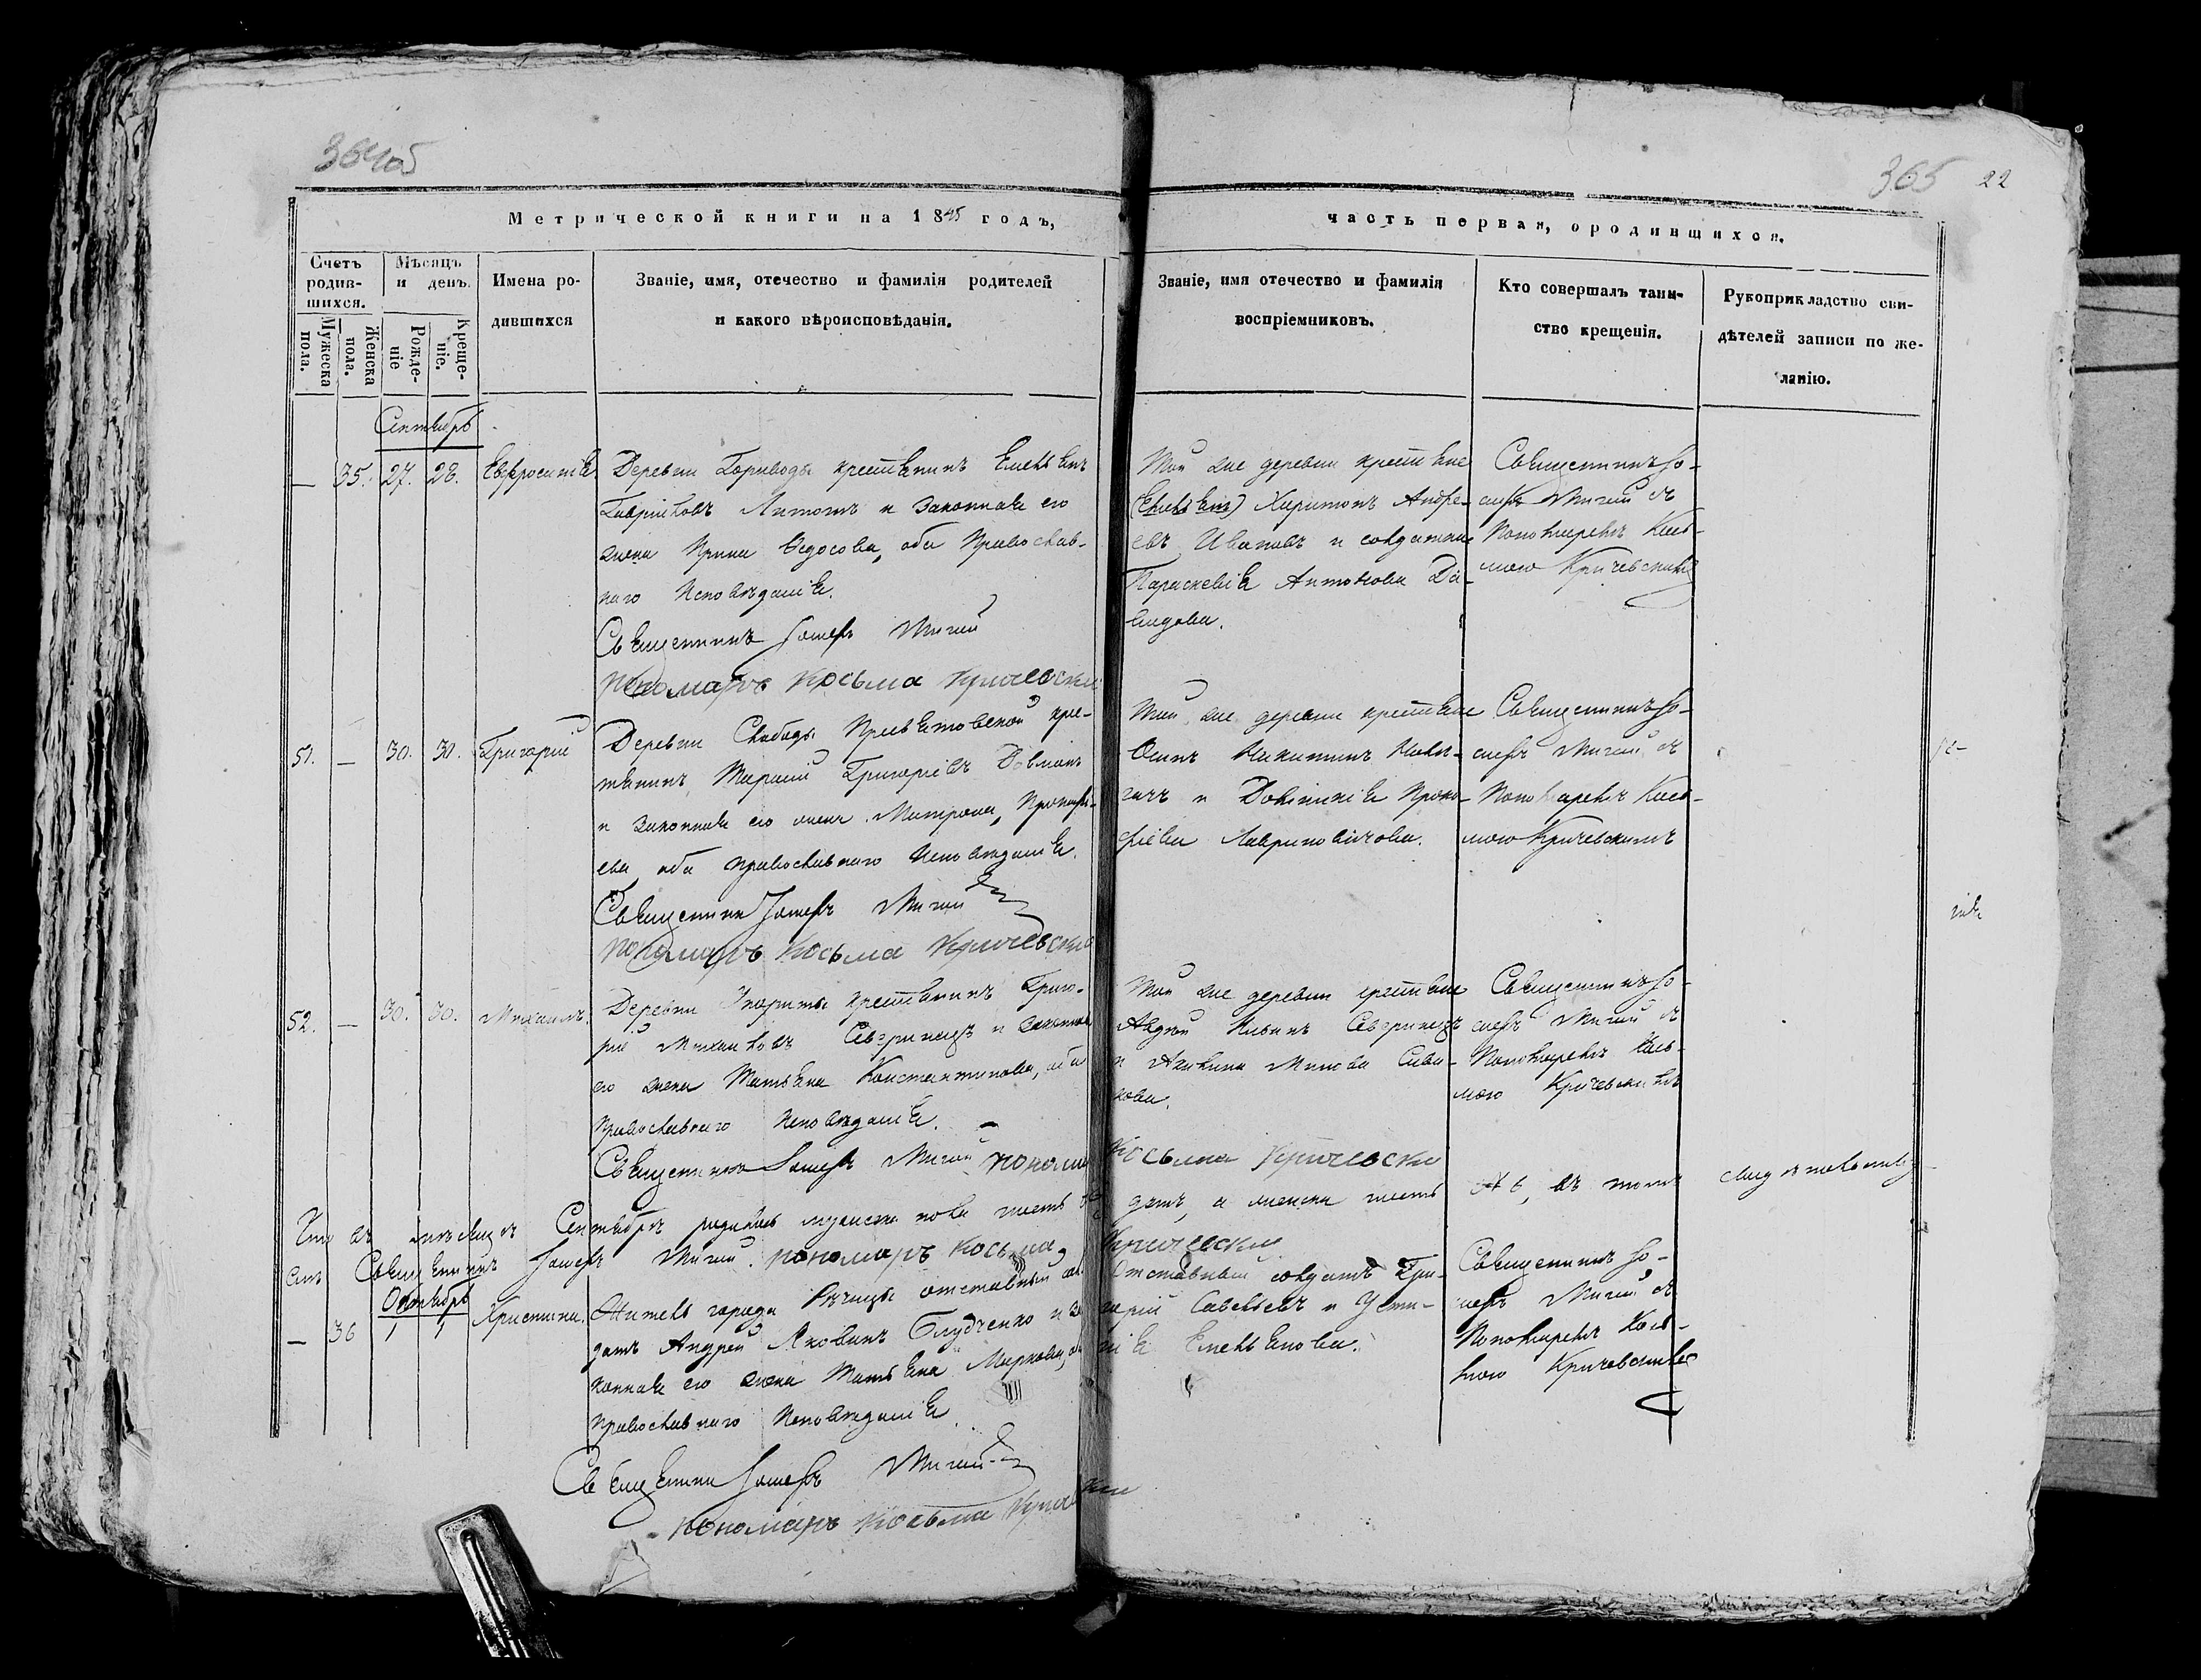 364об
365 22
Метрической книги на 1845 годъ,
часть первая, ородившихся.
Счетъ родив-шихся.
Мужеска пола.
Женска пола.
Мѣсяцъ и день.
Рожде-ніе
Креще-ніе.
Имена ро-
дившихся
Званіе, имя, отечество и фамилія родителей
и какого вѣроисповѣданія.
Званіе, имя отечество и фамилія
воспріемниковъ.
Кто совершалъ таин-
ство крещенія.
Рукоприкладство сви-
дѣтелей записи по же-
ланію.
Сентябрь
— 35. 27. 28. Евфросинія
Деревни крестьянинъ Емельянъ
Гавріиловъ Литошъ и законная его
жена Ирина Ѳедосова, оба Православ-
наго Исповѣданія.
Священникъ Іосифъ Мигай
пономарь Косьма Кричевски
Той же деревни крестьяне
(Емельянъ) Харитонъ Андре-
евъ Ивановъ и солдатка
Параскевія Антонова Да-
видова.
Священникъ Іо-
сифъ Мигай съ
Пономаремъ Кось-
мою Кричевскимъ
51. — 30. 30. Григорій
Деревни Слабоды кре-
стьянинъ Тарасій Григоріевъ
и законная его жена Матрона, Прокофі-
ева оба православнаго Исповѣданія.
Священник Іосифъ Мигай
пономарь Косьма Кричевски
Той же деревни крестьяне
Осипъ Никитинъ
и Домникія Проко-
фіева Лавриновичова.
Священникъ Іо-
сифъ Мигай съ
Пономаремъ Кось-
мою Кричевскимъ
52. — 30. 30. Михаилъ.
Деревни крестьянинъ Григо-
рій Михайловъ Севэринецъ и законная
его жена Татьяна Константинова, оба
православнаго Исповѣданія.
Священникъ Іосифъ Мигай понома
Косьма Кричевски
Той же деревни крестьяне
Авдѣй Ильинъ Севэринецъ
и Акилина Минова Сива-
кова.
Священникъ Іо-
сифъ Мигай съ
Пономаремъ Кось-
мою Кричевскимъ
Что въ мѣсяцѣ Сентябрѣ родилось мужеска пола шесть а женска шесть въ томъ
Священникъ Іосифъ Мигай. пономарь Косьма Кричевски
Октябрь
— 36 1 1 Христина.
Житель города Рѣчицы отставный сол
датъ Андрей Яковинъ Блудченко и за
конная его жена Татьяна Маркова, об
православнаго Исповѣданія.
Священник Іосифъ Мигай
пономарь Косьма Кричевски
Отставный солдатъ Гри-
горій Савельевъ и Усти-
нія Емельянова.
Священникъ Іо-
сифъ Мигай съ
Пономаремъ Кось-
мою Кричевскимъ